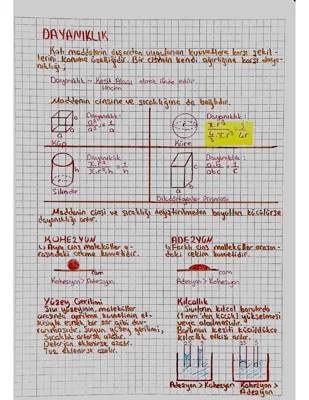 DAYANIKLIK
Katı maddelerin dışardan uygulanan kuvvetlere karşı şekil-
lerini koruma özelliğidir. Bir cismin kendi ağırlığına karşı daya-
nıklılığı,
Dayanıklılık = Kesit Alanı olarak ifade edilir.
Hacim
Maddenin cinsine ve sıcaklığına da bağlıdır.
Dayanıklılık:
a²/a³ = 1/a
a
a
a
Küp
Dayanıklılık:
Küre
Dayanıklılık:
π.r²/π.r².h = 1/h
h
Silindir
Dayanıklılık:
a.b/abc = 1/c
c
a
Dikdörtgenler Prizması
Maddenin cinsi ve sıcaklığı değiştirilmeden boyutları küçülürse
dayanıklılığı artar.
KOHEZYON
Aynı cins moleküller a-
rasındaki çekme kuvvetidir.
cam
Kohezyon > Adezyon
ADEZYON
Farklı cins moleküller arasın-
daki çekim kuvvetidir.
cam
Adezyon > Kohezyon
Yüzey Gerilimi
Sıvı yüzeyinin, moleküller
arasında gerilme kuvvetinin et-
kisiyle esnek bir zar gibi dav-
ranmasıdır. Suyun yüzey gerilimi,
Sıcaklık artarsa azalır.
Deterjan eklenirse azalır.
Tuz eklenirse
Kılcallık
Sıvıların kılcal borularda
(1 mm'den küçük) yükselmesi
veya alçalmasıdır.
Borunun kesiti küçüldükçe
kılcallık etkisi artar.
Adezyon > Kohezyon
Kohezyon >
Adezyon